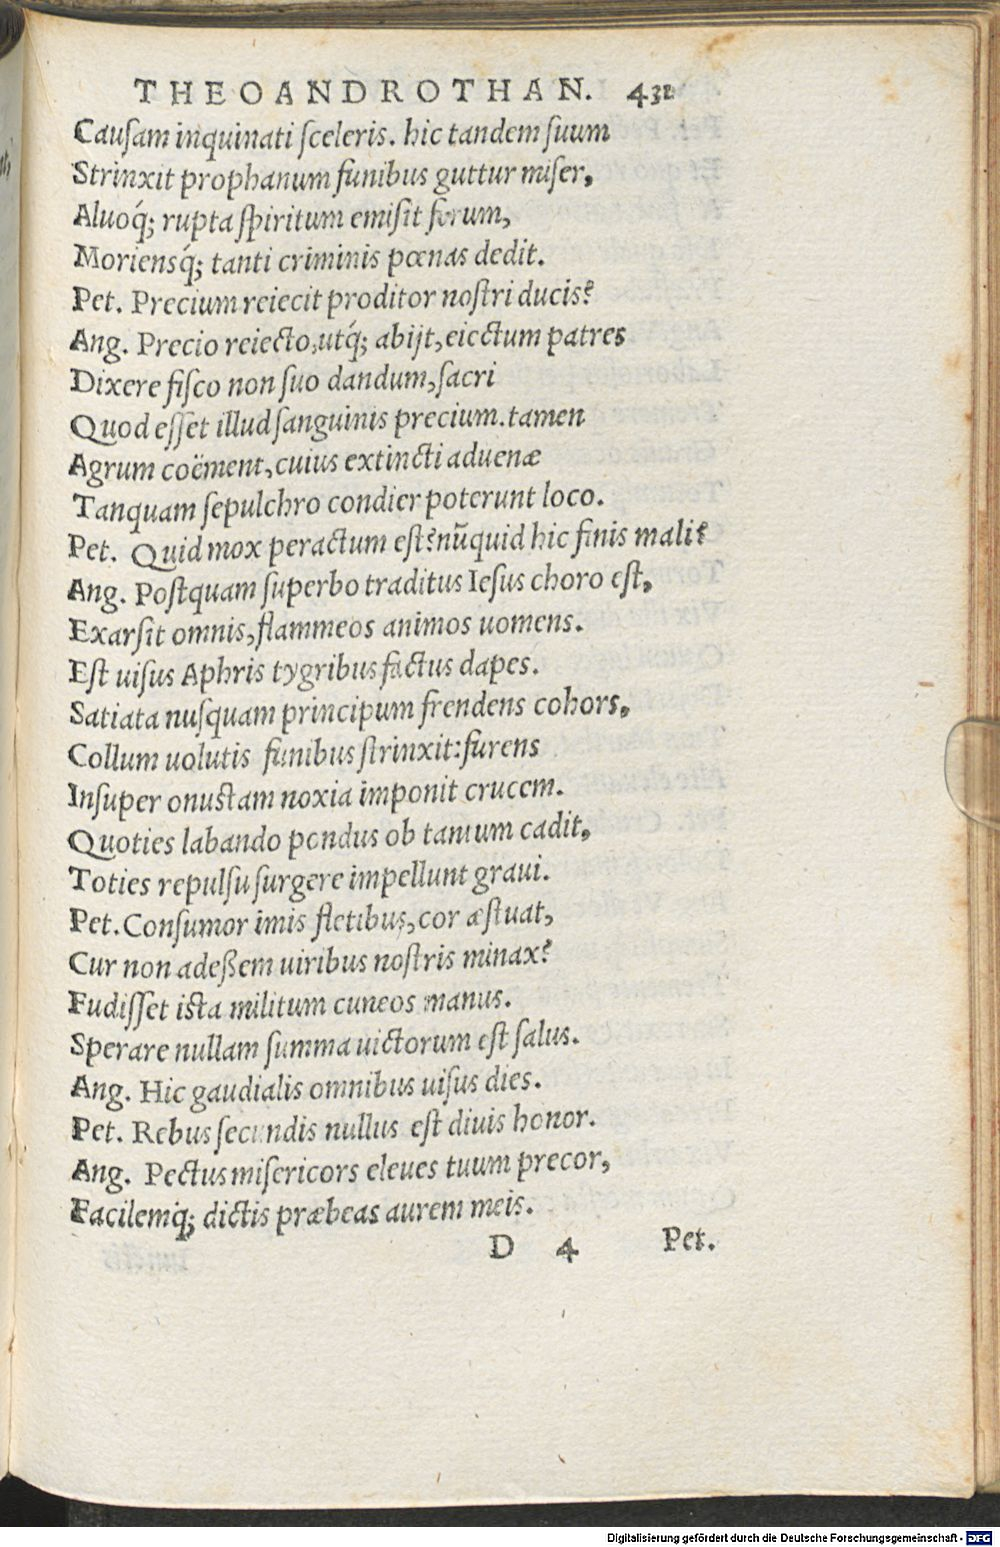 THEOANDROTHAN. 431
Cauſam inquinati ſceleris. hic tandem ſuum
Strinxit prophanum funibus guttur miſer,
Aluoq́; rupta ſpiritum emiſit ferum,
Moriensq́; tanti criminis pœnas dedit.
Pet. Precium reiecit proditor noſtri ducis?
Ang. Precio reiecto, utq́; abijt, eiectum patres
Dixere fiſco non ſuo dandum, ſacri
Quod eſſet illud ſanguinis precium. tamen
Agrum coëment, cuius extincti aduenæ
Tanquam ſepulchro condier poterunt loco.
Pet. Quid mox peractum eſt? nũquid hic finis mali?
Ang. Poſtquam ſuperbo traditus Ieſus choro eſt,
Exarſit omnis, flammeos animos uomens.
Eſt uiſus Aphris tygribus factus dapes.
Satiata nuſquam principum frendens cohors,
Collum uolutis funibus ſtrinxit: furens
Inſuper onuſtam noxia imponit crucem.
Quoties labando pondus ob tantum cadit,
Toties repulſu ſurgere impellunt graui.
Pet. Conſumor imis fletibus, cor æſtuat,
Cur non adeßem uiribus noſtris minax?
Fudiſſet iſta militum cuneos manus.
Sperare nullam ſumma uictorum eſt ſalus.
Ang. Hic gaudialis omnibus uiſus dies.
Pet. Rebus ſecundis nullus eſt diuis honor.
Ang. Pectus miſericors eleues tuum precor,
Facilemq́; dictis præbeas aurem meis.
D 4 Pet.
Digitalisierung gefördert durch die Deutsche Forschungsgemeinschaft - DFG